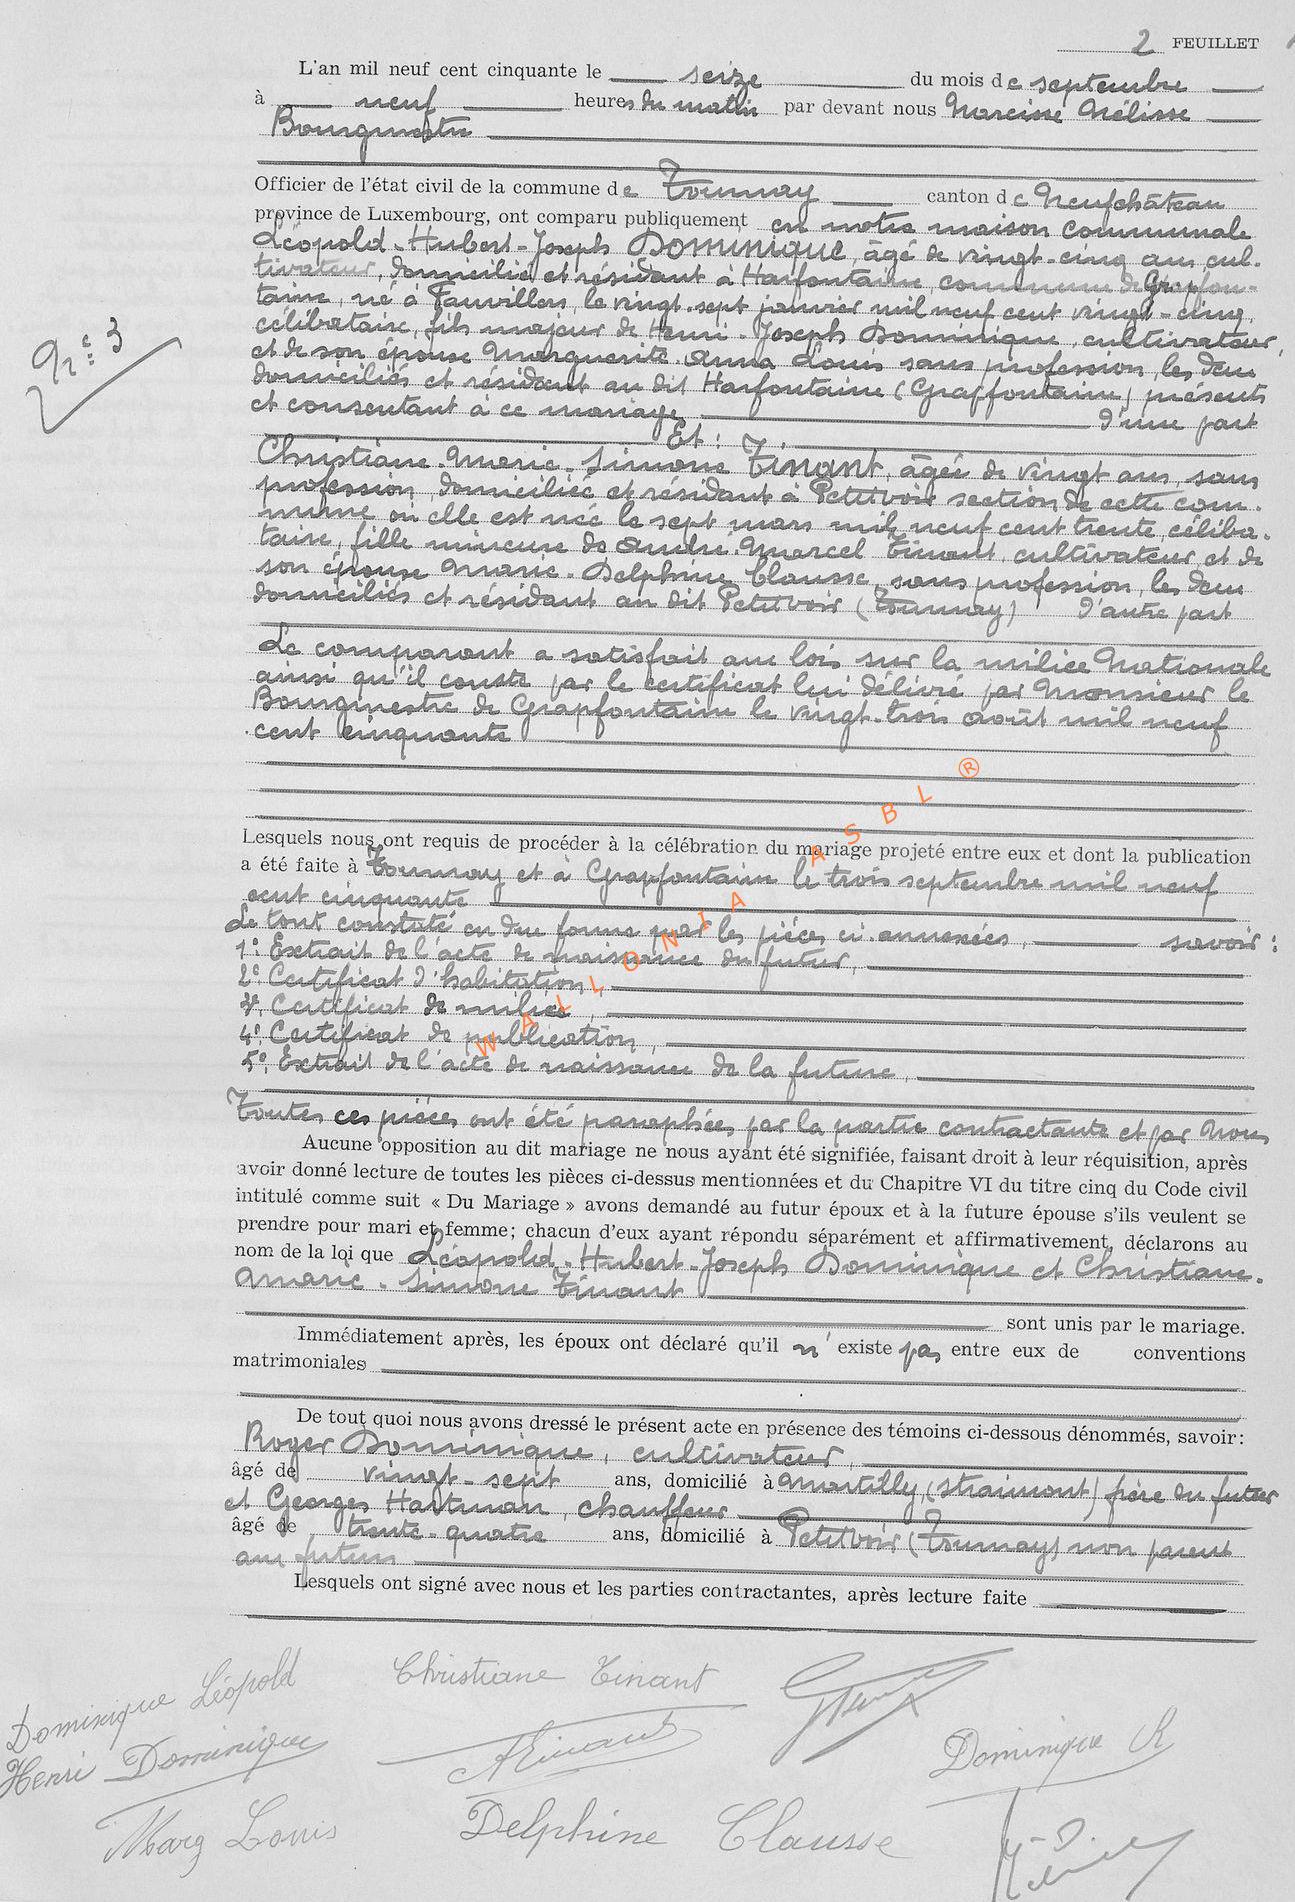 2 FEUILLET
L'an mil neuf cent cinquante le seize du mois de septembre
à neuf heures du matin par devant nous Narcisse Nélisse
Bourgmestre
Officier de l'état civil de la commune de Tournay canton de Neufchâteau
province de Luxembourg, ont comparu publiquement en notre maison communale
Léopold-Hubert-Joseph Dominique, âgé de vingt-cinq ans, cul-
tivateur, domicilié et résidant à Harfontaine, commune de Grapfon-
taine, né à Fauvillers, le vingt-sept janvier mil neuf cent vingt-cinq,
célibataire, fils majeur de Henri-Joseph Dominique, cultivateur,
et de son épouse Marguerite Anna Louis sans profession, les deux
domiciliés et résidant au dit Harfontaine (Graffontaine) présents
et consentant à ce mariage d'une part
N° 3
Et :
Christiane-Marie-Simone Tinant, âgée de vingt ans, sans
profession, domiciliée et résidant à Petitvoir section de cette com-
mune où elle est née le sept mars mil neuf cent trente, céliba-
taire, fille mineure de André-Marcel Tinant, cultivateur, et de
son épouse Marie-Delphine Clausse, sans profession, les deux
domiciliés et résidant au dit Petitvoir (Tournay) d'autre part
Le comparant a satisfait aux lois sur la milice Nationale
ainsi qu'il conste par le certificat lui délivré par Monsieur le
Bourgmestre de Grapfontaine le vingt-trois août mil neuf
cent cinquante
Lesquels nous ont requis de procéder à la célébration du mariage projeté entre eux et dont la publication
a été faite à Tournay et à Grapfontaine le trois septembre mil neuf
cent cinquante
Le tout constaté en due forme par les pièces ci-annexées, savoir :
1° Extrait de l'acte de naissance du futur,
2° Certificat d'habitation,
3° Certificat de milice,
4° Certificat de publication,
5° Extrait de l'acte de naissance de la future,
Toutes ces pièces ont été paraphées par la partie contractante et par Nous
Aucune opposition au dit mariage ne nous ayant été signifiée, faisant droit à leur réquisition, après
avoir donné lecture de toutes les pièces ci-dessus mentionnées et du Chapitre VI du titre cinq du Code civil
intitulé comme suit « Du Mariage » avons demandé au futur époux et à la future épouse s'ils veulent se
prendre pour mari et femme; chacun d'eux ayant répondu séparément et affirmativement, déclarons au
nom de la loi que Léopold-Hubert-Joseph Dominique et Christiane-
Marie-Simone Tinant
sont unis par le mariage.
Immédiatement après, les époux ont déclaré qu'il n'existe pas entre eux de conventions
matrimoniales
De tout quoi nous avons dressé le présent acte en présence des témoins ci-dessous dénommés, savoir:
Roger Dominique, cultivateur,
âgé de vingt-sept ans, domicilié à Martilly, (Straimont) frère du futur
et Georges Hartman, chauffeur
âgé de trente-quatre ans, domicilié à Petitvoir (Tournay) non parent
aux futurs
Lesquels ont signé avec nous et les parties contractantes, après lecture faite
Dominique Léopold
Christiane Tinant
Henri Dominique
A Tinant
Dominique R
Marg Louis
Delphine Clausse
WALLONIA ASBL ®